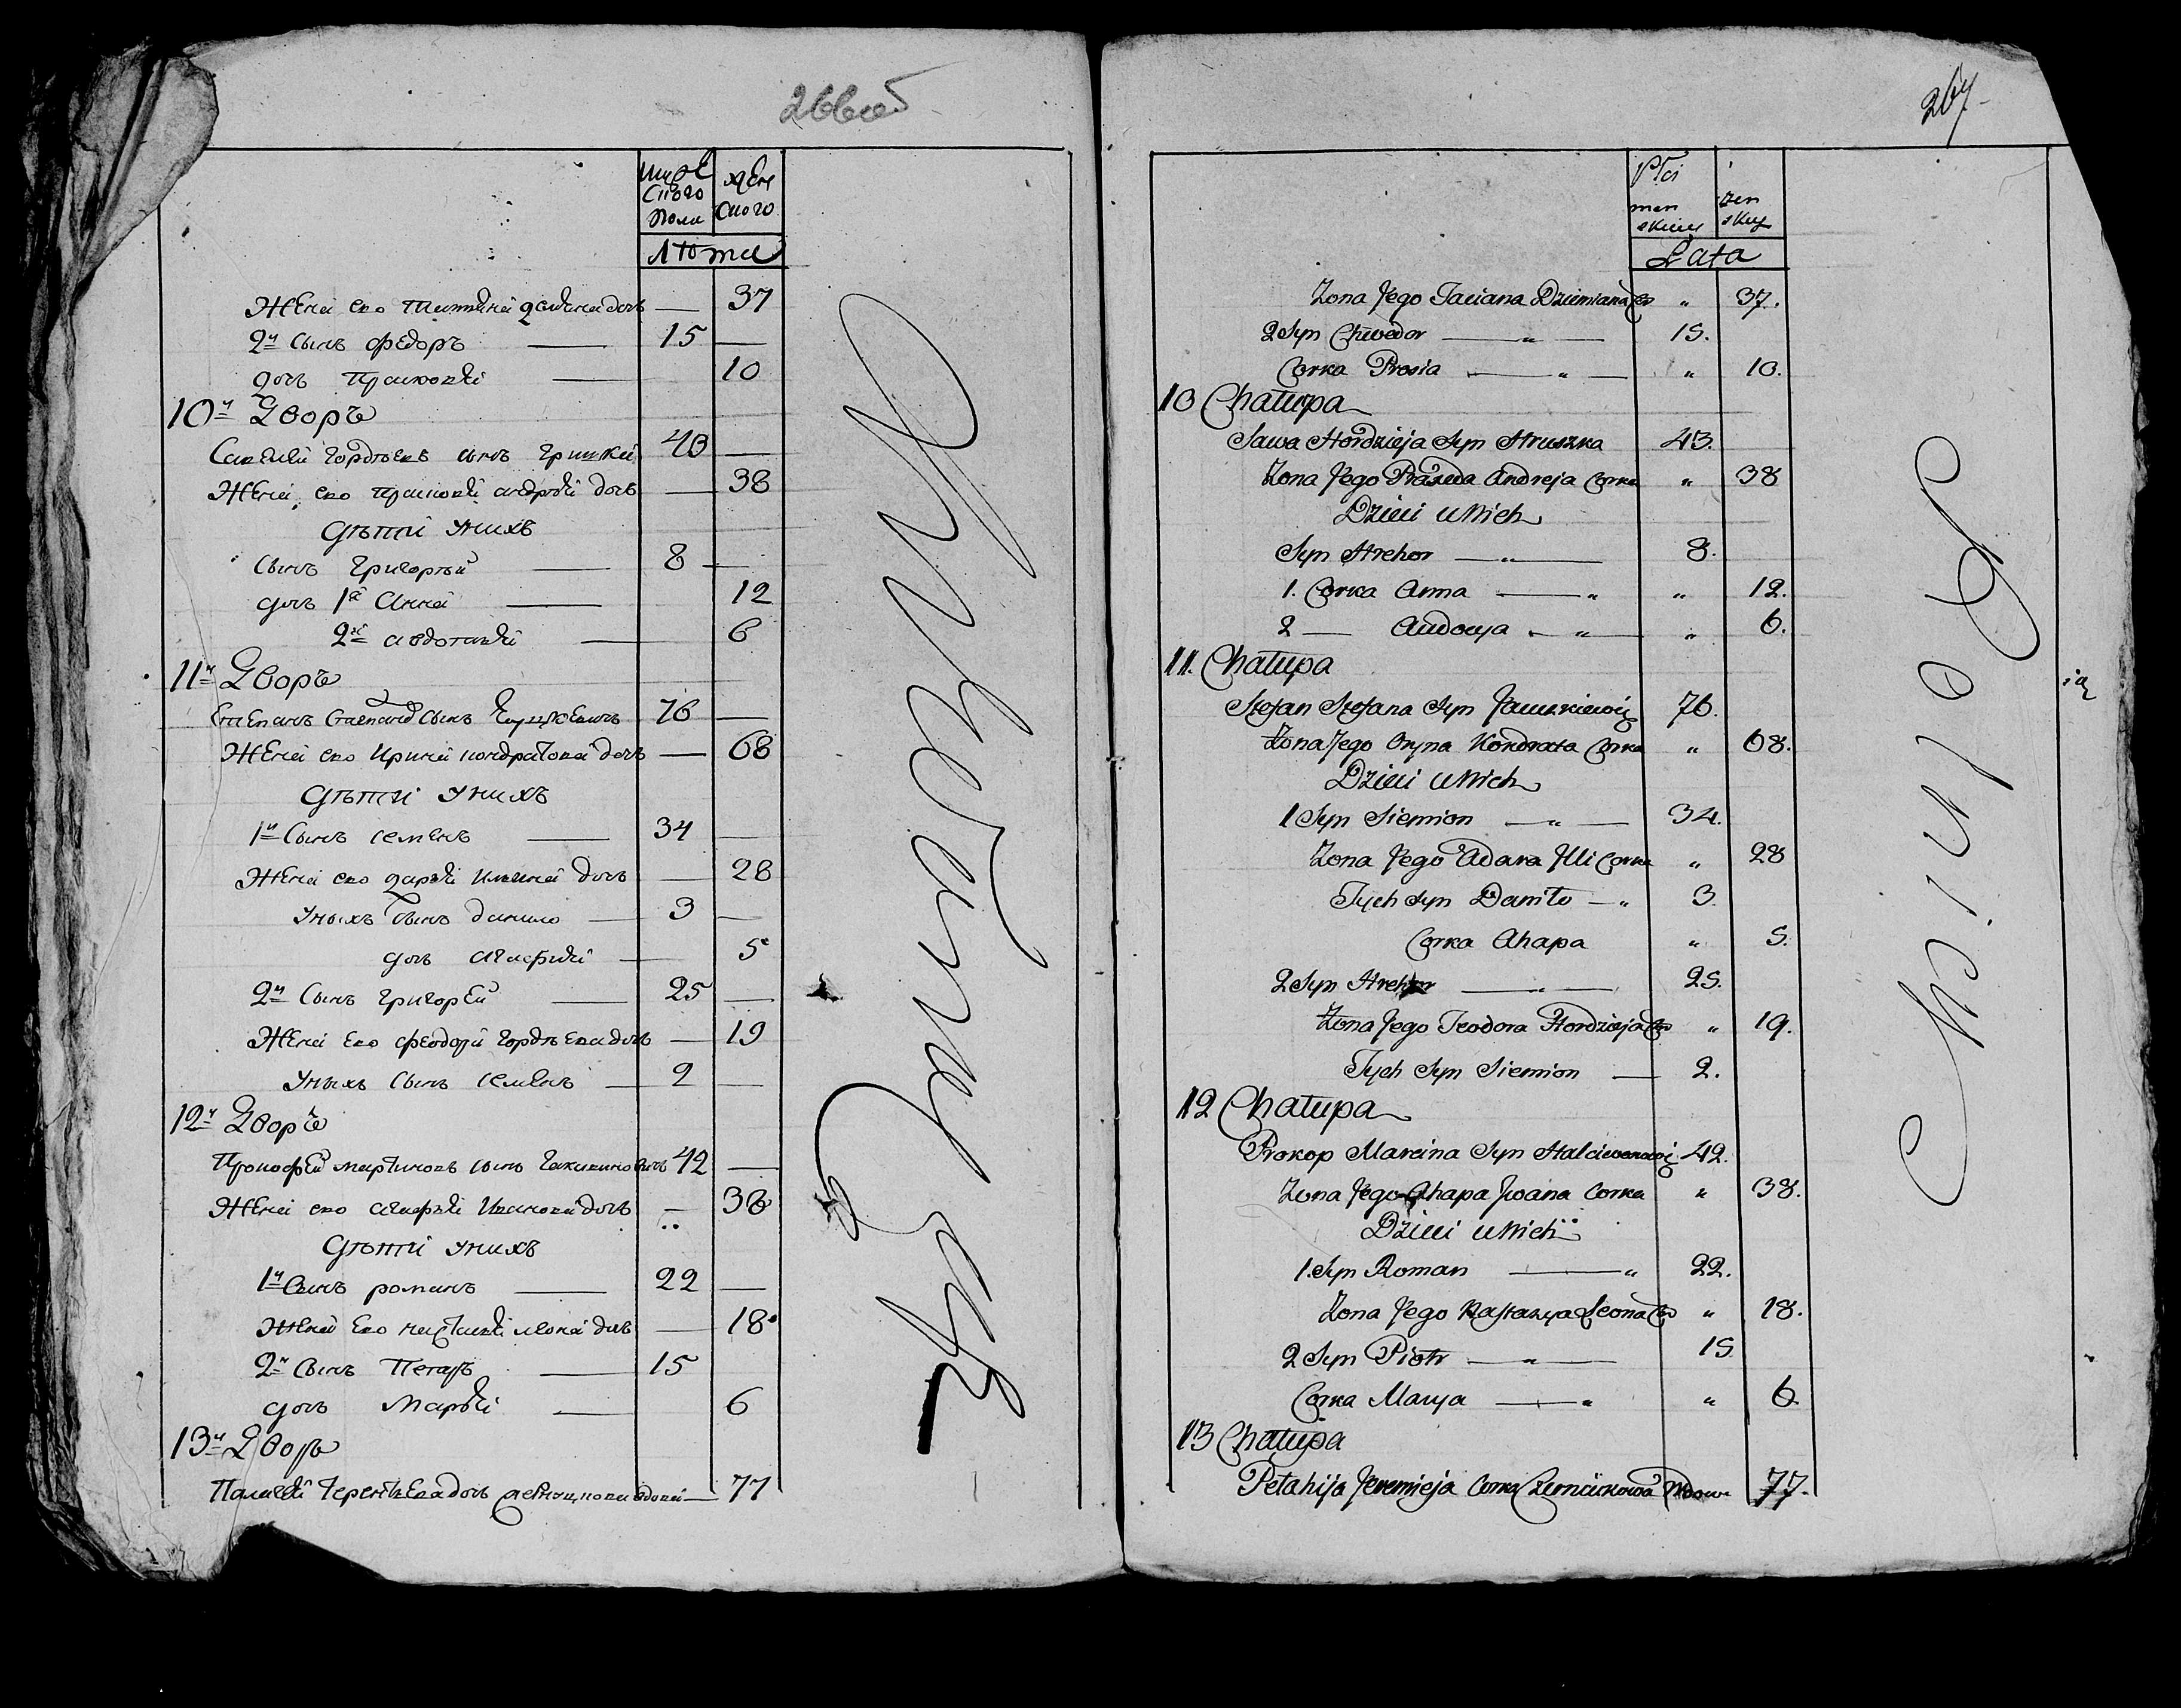 мужеского пола
женского
Лѣта
Жена его Татяна Демяна дочь — 37
2й сынъ Федоръ — 15 —
дочь Прасковья — 10
10й Дворъ
Савелей Гордѣевъ сынъ Грушка 43 —
Жена его Прасковья Андрѣя дочь — 38
Дѣти у нихъ
сынъ Григорѣй — 8 —
дочь 1я Анна — 12
2я Авдотья — 6
11й Дворъ
Степанъ Степановъ сынъ 76 —
Жена его Ирина Кондратова дочь — 68
Дѣти у нихъ
1й сынъ Семенъ — 34 —
Жена его Дарья Ильина дочь — 28
У ныхъ сынъ Данило — 3 —
дочь Агафья — 5
2й сынъ Григорей — 25 —
Жена его Феодора Гордѣева дочь — 19
У ныхъ сынъ Семенъ — 2 —
12й Дворъ
Прокофей Мартиновъ сынъ 42 —
Жена его Агафья Иванова дочь — 38
Дѣти у нихъ
1й сынъ Романъ — 22 —
Жена его Настасья Леона дочь — 18
2й сынъ Петръ — 15
дочь Марья — 6
13й Дворъ
Палагея дочь вдова — 77
267
Płci
męn
skiey
żen
skiey
Lata
Żona Jego Taciana Dziemiana Co " 37.
2 Syn Chwedor — " — 15.
Corka Prosia — " — " 10.
10 Chałupa
Sawa Hordzieja Syn Hruszka 43.
Żona Jego Praseda Andreja Corka " 38
Dzieci u Nich
Syn Hrehor — " — 8.
1. Corka Anna — " " 12.
2 — Audocya — " — " 6.
11. Chałupa
Stefan Stefana Syn 76.
Żona Jego Oryna Kondrata Corka " 68.
Dzieci u Nich
1 Syn Siemion — " — 34.
Żona Jego Adara Illi Corka " 28
Tych Syn Daniło — " 3.
Corka Ahapa " 5.
2 Syn Hrehor — " — 25.
Żona Jego Teodora Hordzieja Co " 19.
Tych Syn Siemion — 2.
12 Chałupa
Prokop Marcina Syn 42.
Żona Jego Ahapa Jwana Corka " 38.
Dzieci u Nich
1. Syn Roman — " 22.
Żona Jego Nastazya Leona Co " 18.
2 Syn Piotr — " — 15.
Corka Marya — " " 6.
13 Chałupa
Pełahija Jeremieja Corka Wdowa 77.